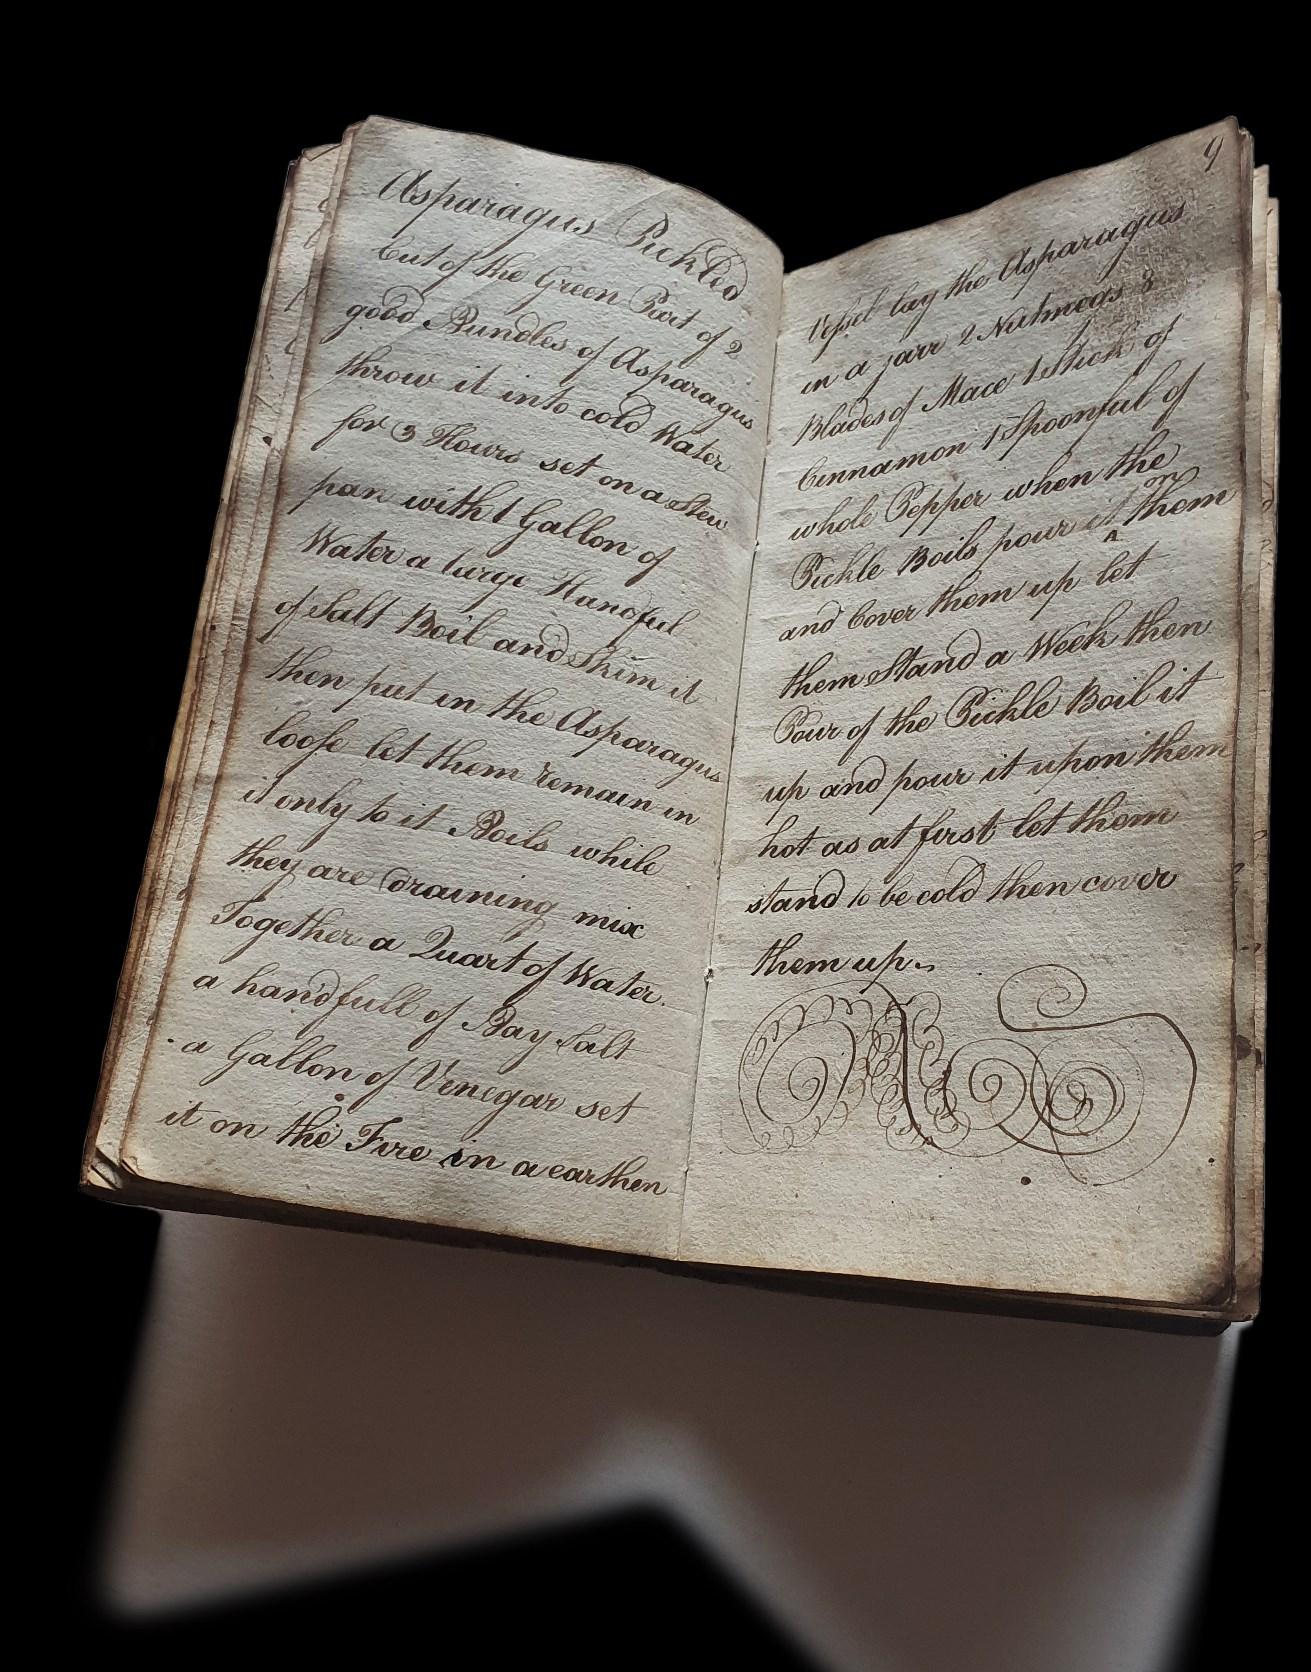 Asparagus Pickled
Cut of the Green Part of 2
good Bundles of Asparagus
throw it into cold Water
for 3 Hours set on a Stew
pan with 1 Gallon of
Water a large Handful
of Salt Boil and Skim it
then put in the Asparagus
loose let them remain in
it only to it Boils while
they are draining mix
Together a Quart of Water.
a handfull of Bay Salt
a Gallon of Vinegar set
it on the Fire in a earthen
9
Vessel lay the Asparagus
in a jarr 2 Nutmegs 3
Blades of Mace 1 Stick of
Cinnamon 1 Spoonful of
whole Pepper when the
Pickle Boils pour it on them
and Cover them up let
them Stand a Week then
Pour of the Pickle Boil it
up and pour it upon them
hot as at first let them
stand to be cold then cover
them up.